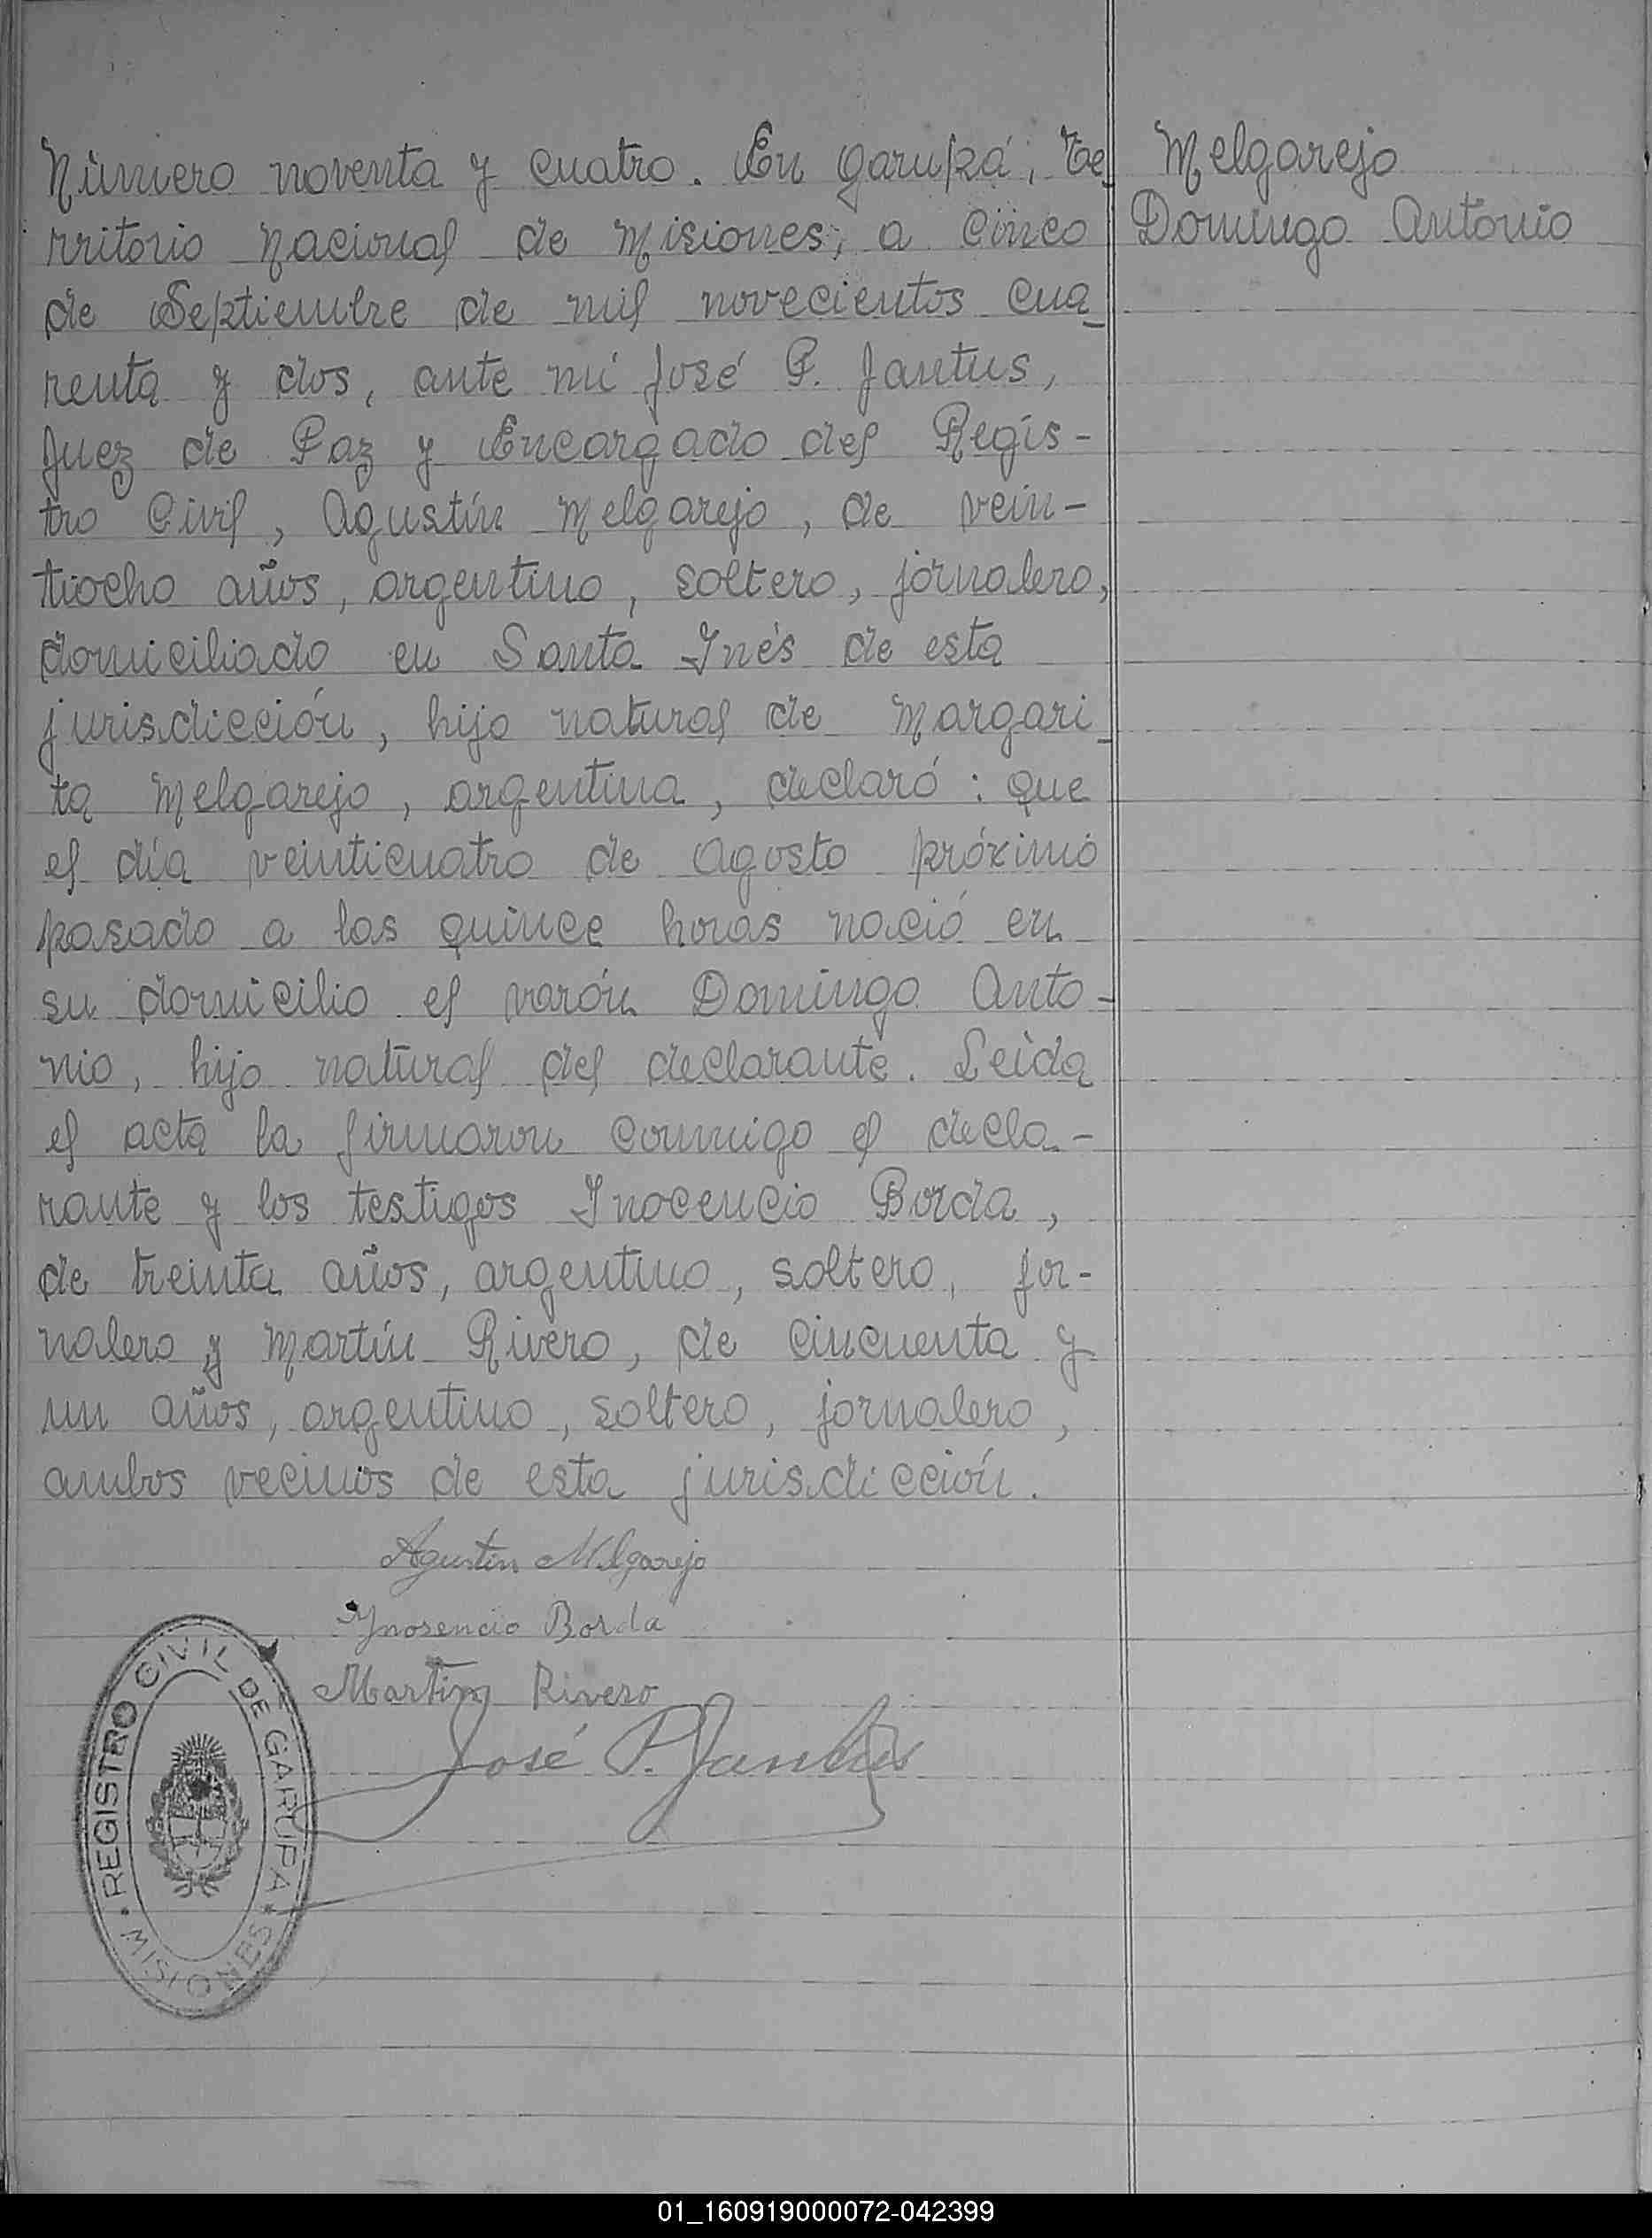 Número noventa y cuatro. En Garupá, Te_
rritorio Nacional de Misiones, a cinco
de Septiembre de mil novecientos cua_
renta y dos, ante mí José P. Jantus,
Juez de Paz y Encargado del Regis-
tro Civil, Agustín Melgarejo, de vein-
tiocho años, argentino, soltero, jornalero,
domiciliado en Santa Inés de esta
jurisdicción, hijo natural de Margari_
ta Melgarejo, argentina, declaró: que
el día veinticuatro de Agosto próximo
pasado a las quince horas nació en
su domicilio el varón Domingo Anto-
nio, hijo natural del declarante. Leída
el acta la firmaron conmigo el decla-
rante y los testigos Inocencio Borda,
de treinta años, argentino, soltero, jor-
nalero y Martín Rivero, de cincuenta y
un años, argentino, soltero, jornalero,
ambos vecinos de esta jurisdicción.
Melgarejo
Domingo Antonio
Agustin Melgarejo
Ynosencio Borda
Martin Rivero
José P. Jantus
REGISTRO CIVIL DE GARUPA
MISIONES
01_160919000072-042399